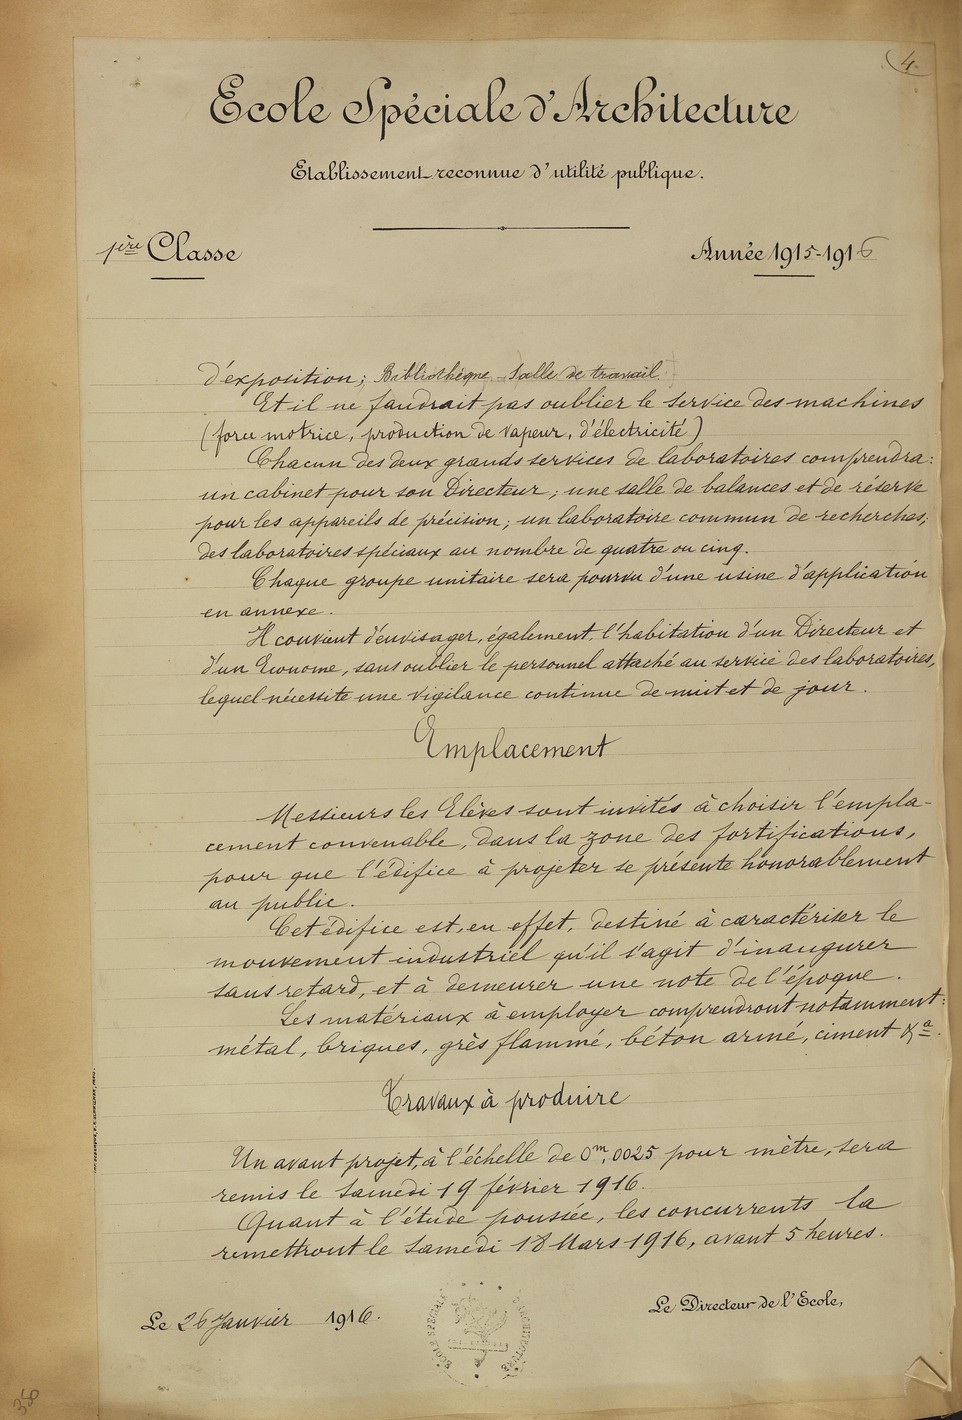 4
Ecole Spéciale d'Architecture
Etablissement reconnue d'utilité publique.
1ère Classe
Année 1915-1916
d'exposition; Bibliothèque - Salle de travail.
Et il ne faudrait pas oublier le service des machines
(force motrice, production de vapeur, d'électricité)
Chacun des deux grands services de laboratoires comprendra:
un cabinet pour son Directeur; une salle de balances et de réserve
pour les appareils de précision; un laboratoire commun de recherches;
des laboratoires spéciaux au nombre de quatre ou cinq.
Chaque groupe unitaire sera pourvu d'une usine d'application
en annexe.
Il convient d'envisager, également, l'habitation d'un Directeur et
d'un Econome, sans oublier le personnel attaché au service des laboratoires,
lequel nécessite une vigilance continue de nuit et de jour.
Emplacement
Messieurs les Elèves sont invités à choisir l'empla-
cement convenable, dans la zone des fortifications,
pour que l'édifice à projeter se présente honorablement
au public.
Cet édifice est, en effet, destiné à caractériser le
mouvement industriel qu'il s'agit d'inaugurer
sans retard, et à demeurer une note de l'époque.
Les matériaux à employer comprendront notamment:
métal, briques, grès flammé, béton armé, ciment &a.
Travaux à produire
Un avant projet, à l'échelle de 0m,0025 pour mètre, sera
remis le Samedi 19 février 1916.
Quant à l'étude poussée, les concurrents la
remettront le Samedi 18 Mars 1916, avant 5 heures.
Le Directeur de l'Ecole,
Le 26 Janvier 1916.
ECOLE SPECIALE D'ARCHITECTURE
350